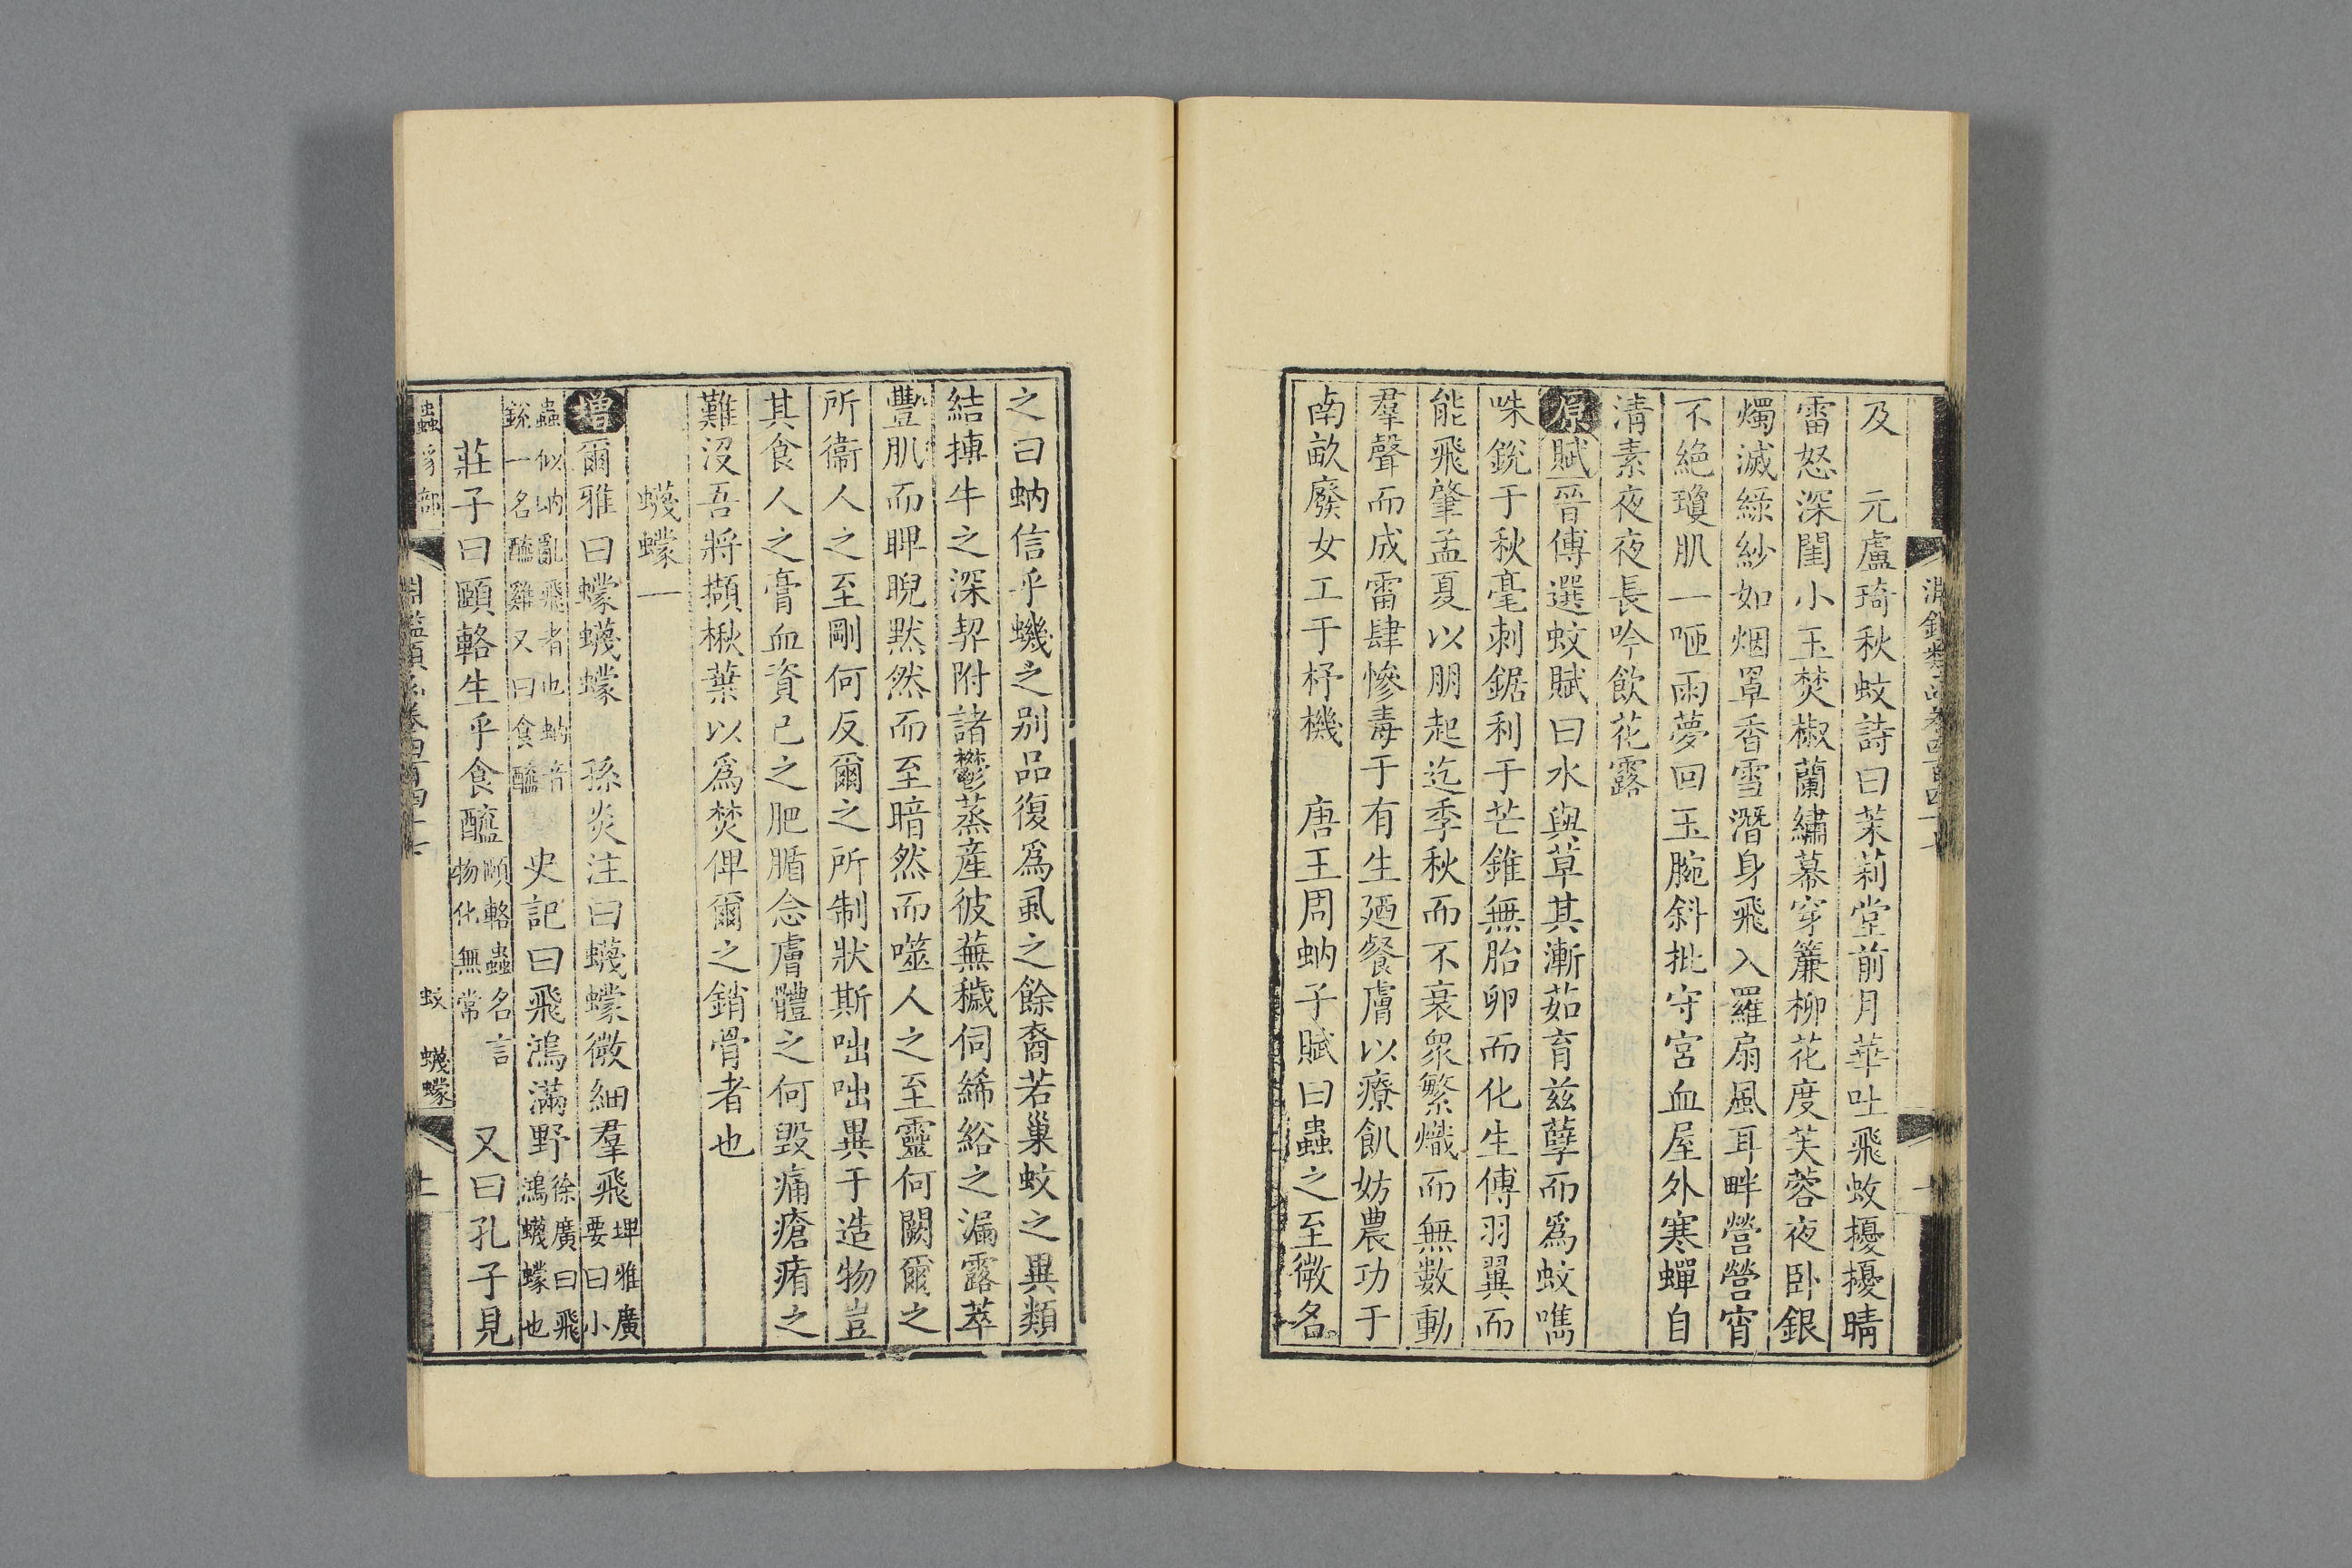 及　元盧琦秋蚊詩曰茉莉堂前月華吐飛蚊擾擾晴
雷怒深閨小玉焚椒蘭繡幕穿簾柳花度芙蓉夜卧銀
燭滅綠紗如烟罩香雪潛身飛入羅扇風耳畔營營宵
不絶瓊肌一咂雨夢回玉腕斜批守宮血屋外寒蟬自
淸素夜夜長吟飲花露
原賦晉傅選蚊賦曰水與草其漸茹育兹孽而爲蚊嘴
咮銳于秋毫刺鋸利于芒錐無胎卵而化生傅羽翼而
能飛肇孟夏以朋起迄季秋而不衰衆繁熾而無數動
羣聲而成雷肆慘毒于有生廼餐膚以療飢妨農功于
南畝廢女工于杼機　唐王周蚋子賦曰蟲之至微名
之曰蚋信乎蟣之别品復爲虱之餘裔若巢蚊之異類
結摶牛之深契附諸鬱蒸產彼蕪穢伺絺綌之漏露萃
豐肌而睥睨默然而至暗然而噬人之至靈何闕爾之
所衞人之至剛何反爾之所制狀斯咄咄異于造物豈
其食人之膏血資已之肥腯念膚體之何毀痛瘡痏之
難没吾將擷楸葉以爲焚俾爾之銷骨者也
蠛蠓一
增爾雅曰蠓蠛蠓　孫炎注曰蠛蠓微細羣飛埤雅廣要曰小
蟲似蚋亂飛者也蚋音銳一名醯雞又曰食醯　史記曰飛鴻滿野徐廣曰飛鴻蠛蠓也
莊子曰頤輅生乎食醯頤輅蟲名言物化無常　又曰孔子見
蟲豸部
淵鑑類函卷四百四十七
蚊　蠛蠓